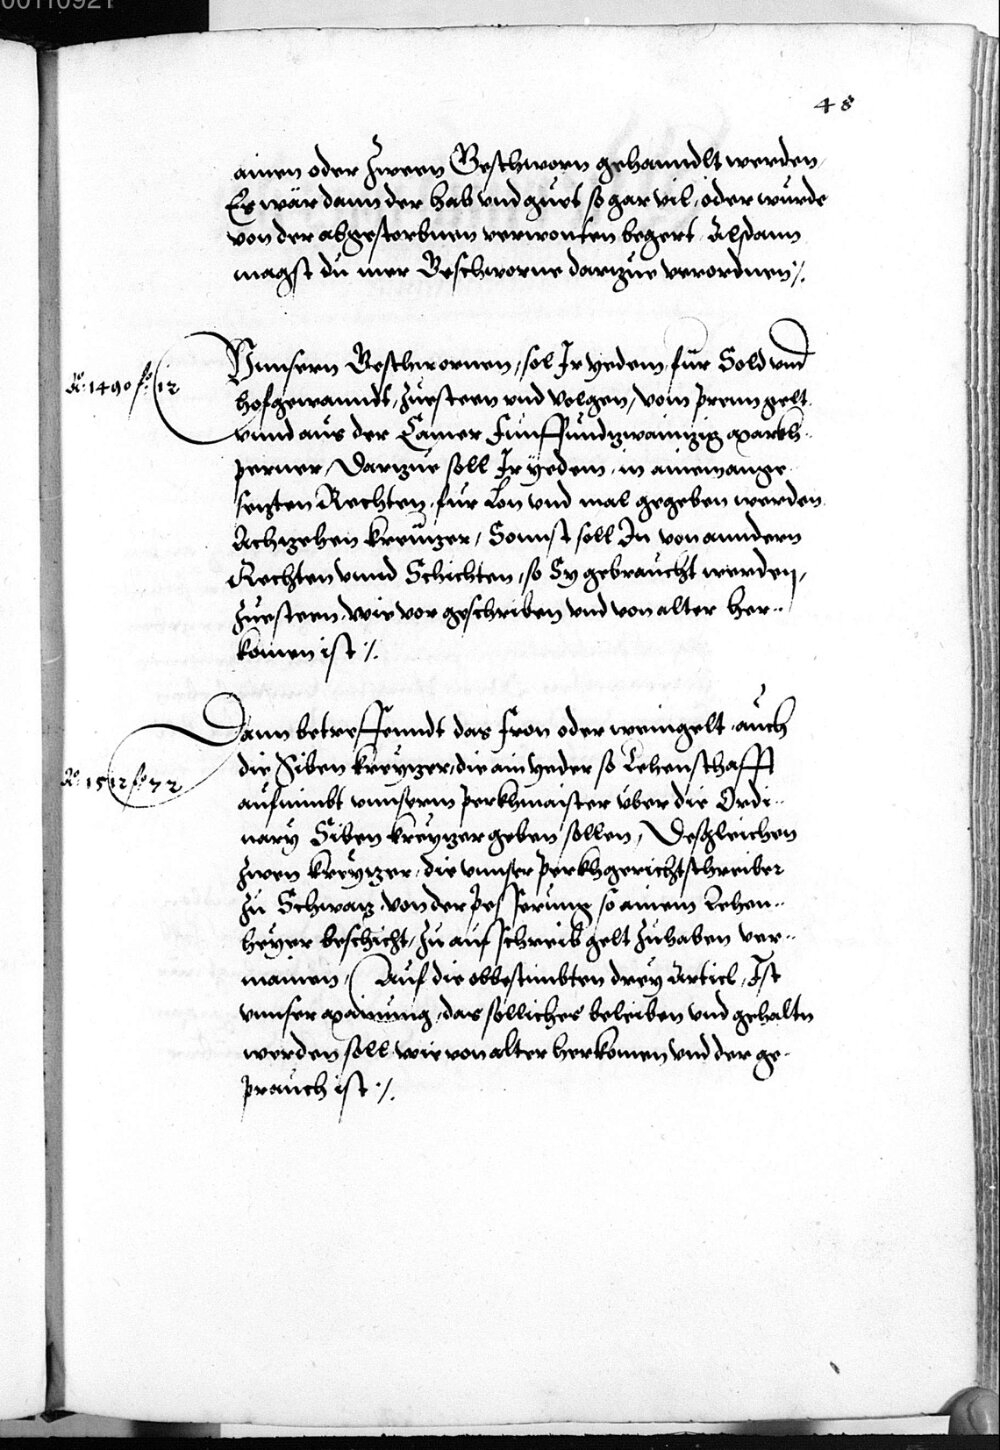 00110921
48
ainen oder Zween Geschworn gehanndlt werden,
Es wär dann der hab vnd guet so gar vil, oder wurde
von der abgestorbnen verwonten begert, Alsdann
magst du mer Geschworne darzue verordnen /.
Vnnsern Geschwornen, sol Ir yedem, für Sold vnd
Aō. 1490 fo. 12
hofgewannds, Zuesteen vnd volgen, vom prenngelt
vnnd aus der Camer Funffundzwainzig March
perner, Darzue soll Ir yedem, in ainem ange
sezten Rechten, für Lon vnd mal gegeben werden
Achzehen kreuzer, Sonnst soll In von anndern
Rechten vnnd Schichten, so Sy gebraucht werden,
Zuesteen, wie vor geschriben vnd von alter her-
komen ist /.
Dann betreffenndt das Fron oder wenngelt, auch
die Siben kreyzer, die ain yeder so Lehenschafft
Aō. 1512 fo. 72
aufnimbt vnnserm Perkhmaister über die Ordi-
nary Siben kreyzer geben sollen, Desgleichen
Zwen kreyzer, die vnnser Perkhgerichtschreiber
Zu Schwaz, von der Pesserung so ainem Lehen-
heyer beschicht, Zu aufschreibgelt Zuhaben ver-
mainen, Auf die obbestimbten drey Articl, Ist
vnnser Mainung, das sölliches beleiben vnd gehaltn
werden soll, wie von alter herkomen vnd der ge-
prauch ist /.